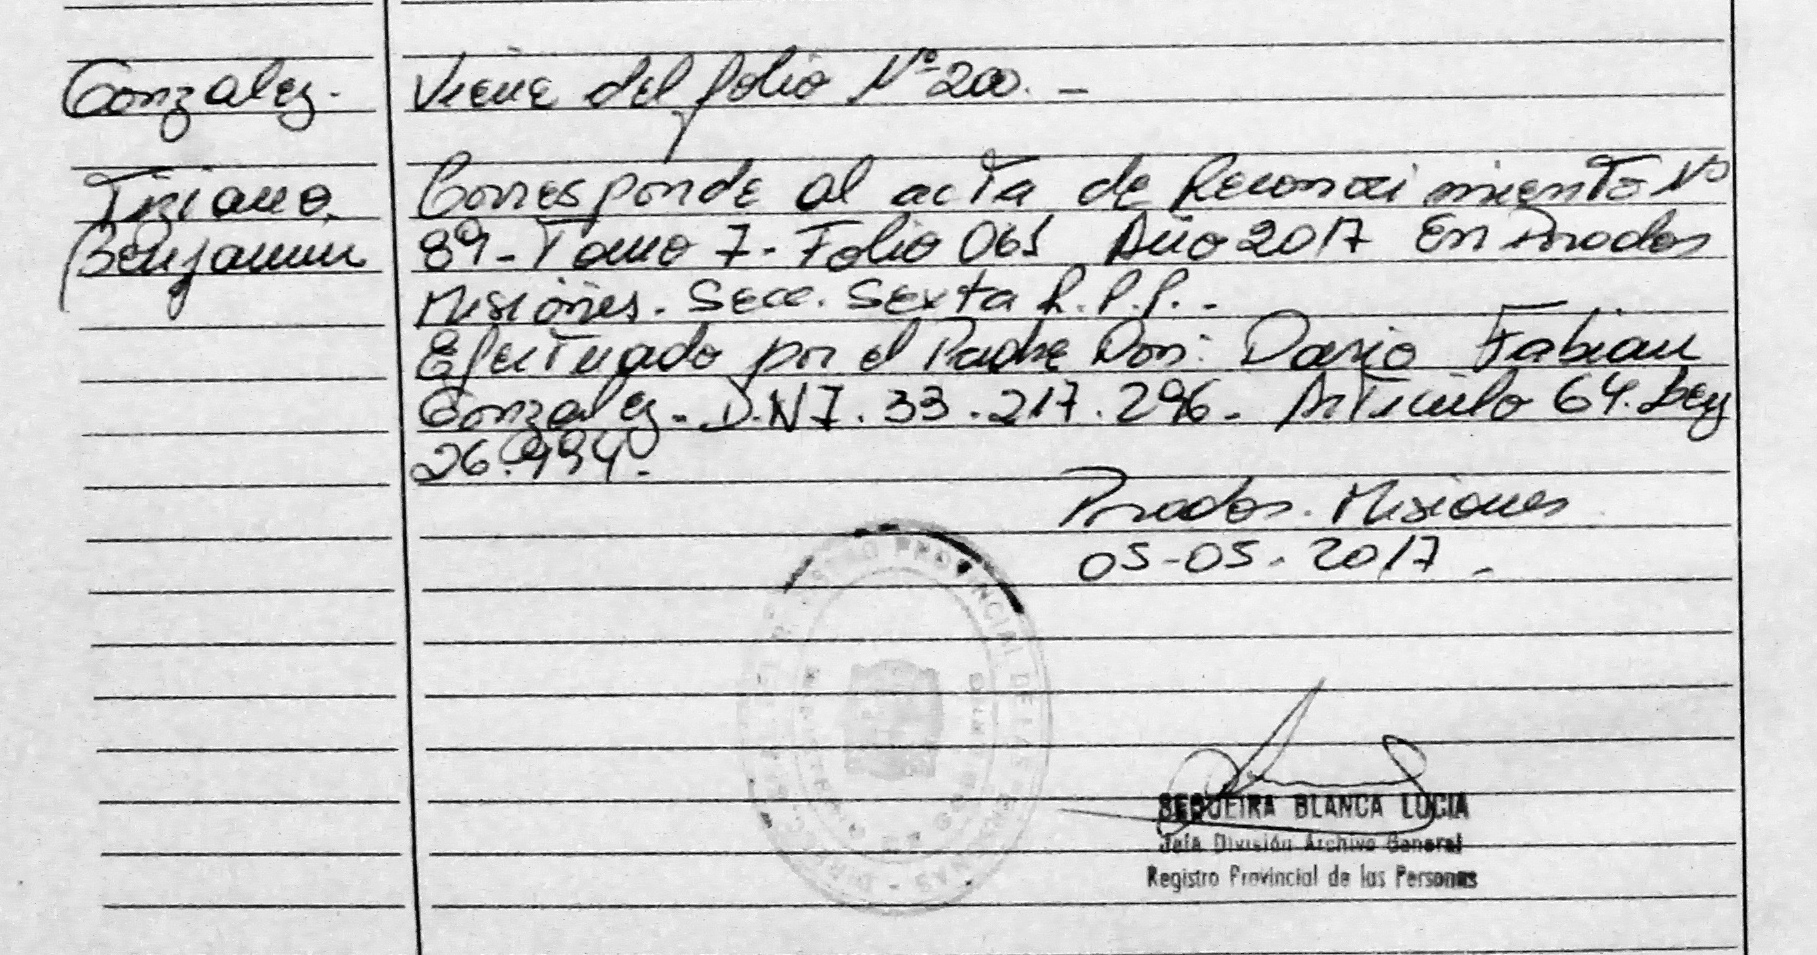 Gonzalez.
Viene del folio Nº 200. -
Tiziano
Benjamin
Corresponde al acta de Reconocimiento Nº
89 - Tomo 7 - Folio 061 Año 2017 En Posadas
Misiones. Secc. Sexta R.P.P. -
Efectuado por el Padre Don: Dario Fabian
Gonzalez - D.N.I. 33.217.296 - Articulo 64. Ley
26.994 -
Posadas. Misiones
05-05-2017 -
PROVINCIAL DE LAS
SEQUEIRA BLANCA LUCIA
Jefa División Archivo General
Registro Provincial de las Personas